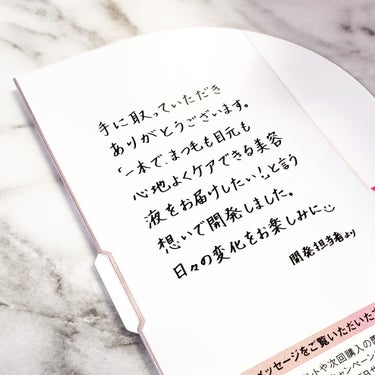 手に取っていただき
ありがとうございます。
「一本で、まつ毛も目元も
心地よくケアできる美容
液をお届けしたい!」と言う
想いで開発しました。
日々の変化をお楽しみに
開発担当者より
メッセージをご覧いただいた
ットや次回購入の
キャンペーン